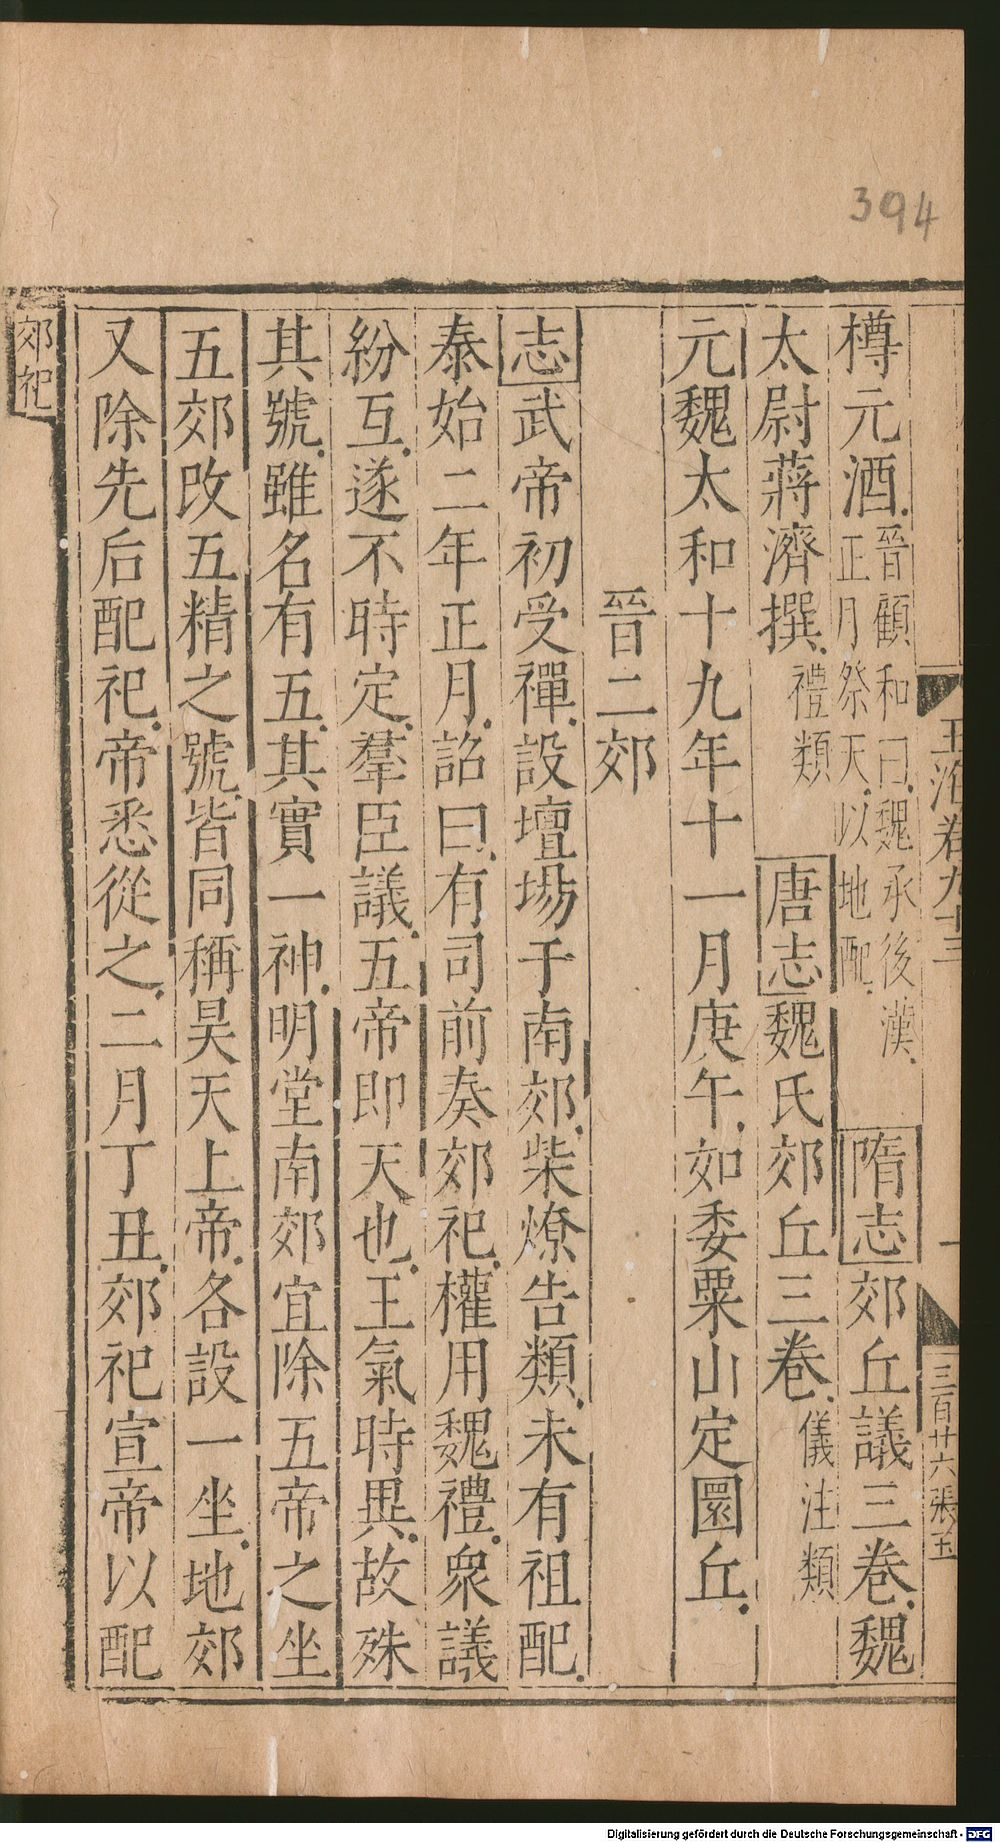 394
玉海卷九十三
一
三百廿六張玉
樽元酒晉顧和曰魏承後漢正月祭天以地配隋志郊丘議三卷魏
太尉蔣濟撰禮類唐志魏氏郊丘三卷儀注類
元魏太和十九年十一月庚午如委粟山定圜丘
晉二郊
志武帝初受禪設壇場于南郊柴燎告類未有祖配
泰始二年正月詔曰有司前奏郊祀權用魏禮衆議
紛互遂不時定羣臣議五帝即天也王氣時異故殊
其號雖名有五其實一神明堂南郊宜除五帝之坐
五郊改五精之號皆同稱昊天上帝各設一坐地郊
又除先后配祀帝悉從之二月丁丑郊祀宣帝以配
郊祀
Digitalisierung gefördert durch die Deutsche Forschungsgemeinschaft - DFG